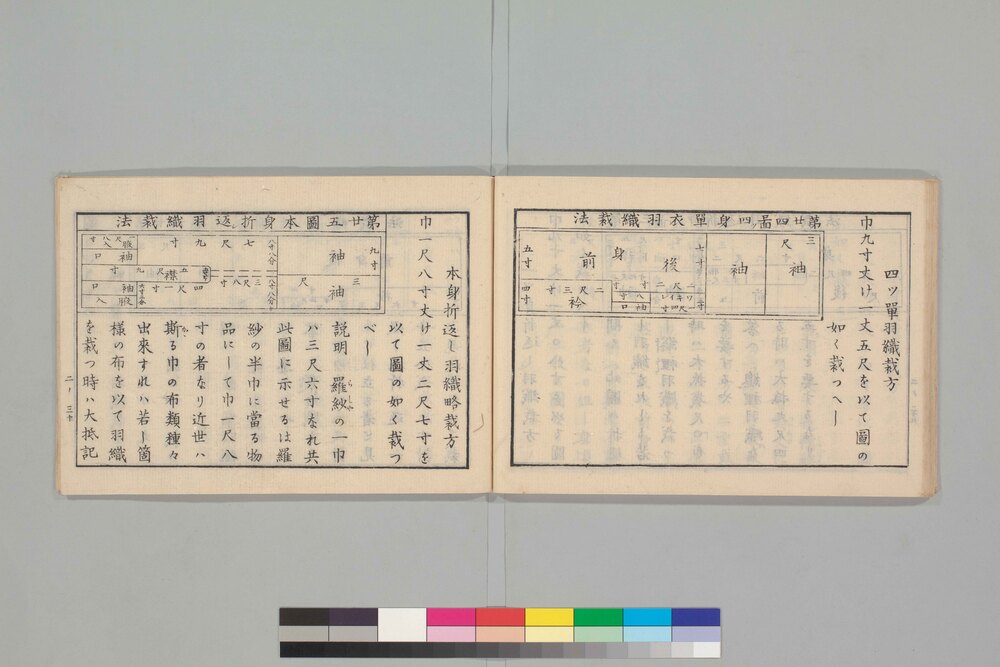 四ッ單羽織裁方
巾九寸丈け一丈五尺を以て圖の
如く裁つへし
第廿四圖四ッ身單衣羽織裁法
三尺
袖
袖
七寸
後
身
前
五寸
四寸
二尺三寸
衽
袖口
八寸
本身折返し羽織略裁方
巾一尺八寸丈け一丈二尺七寸を
以て圖の如く裁つ
べし
説明 羅紗の一巾
ハ三尺六寸なれ共
此圖に示せるは羅
紗の半巾に當る物
品にして巾一尺八
寸の者なり近世ハ
斯る巾の布類種々
出來すれハ若し箇
樣の布を以て羽織
を裁つ時ハ大抵記
第廿五圖本身折返し羽織裁法
九寸
袖
袖
三尺
八寸八分
八寸八分
七尺九寸
三尺八寸
四尺一寸
襟
五尺九寸
袖口
袖口
二ノ三十